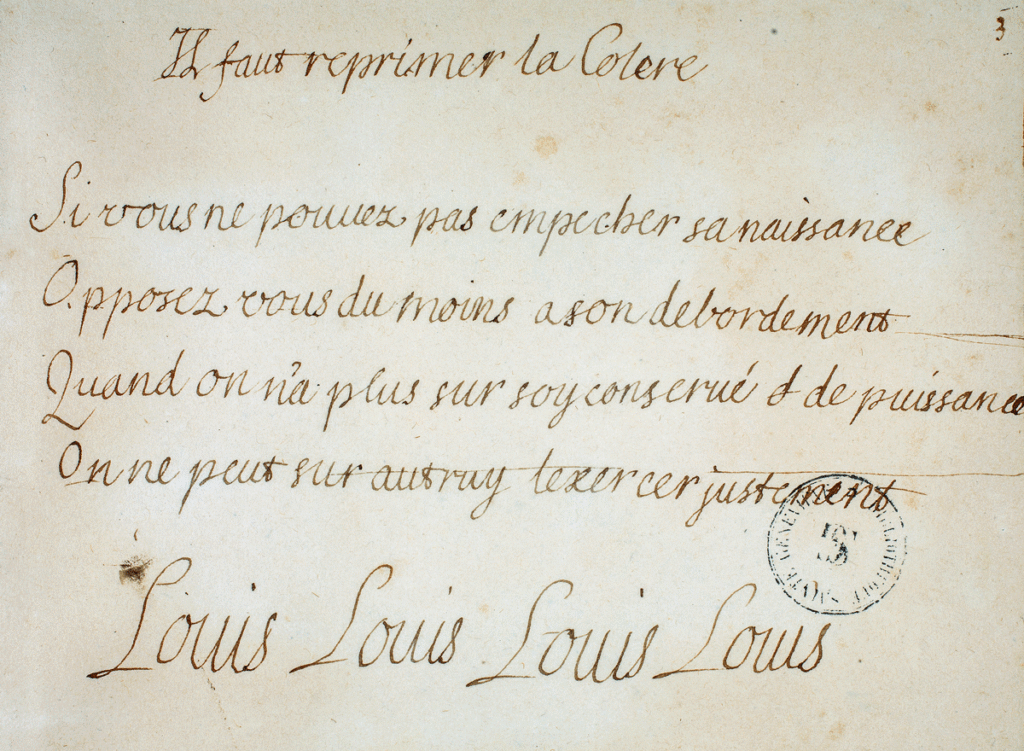 3
Il faut reprimer la Colere
Si vous ne pouuez pas empecher sa naissance
Opposez vous du moins a son debordement
Quand on n'a plus sur soy conserué de puissance
On ne peut sur autruy lexercer justement
Louis Louis Louis Louis